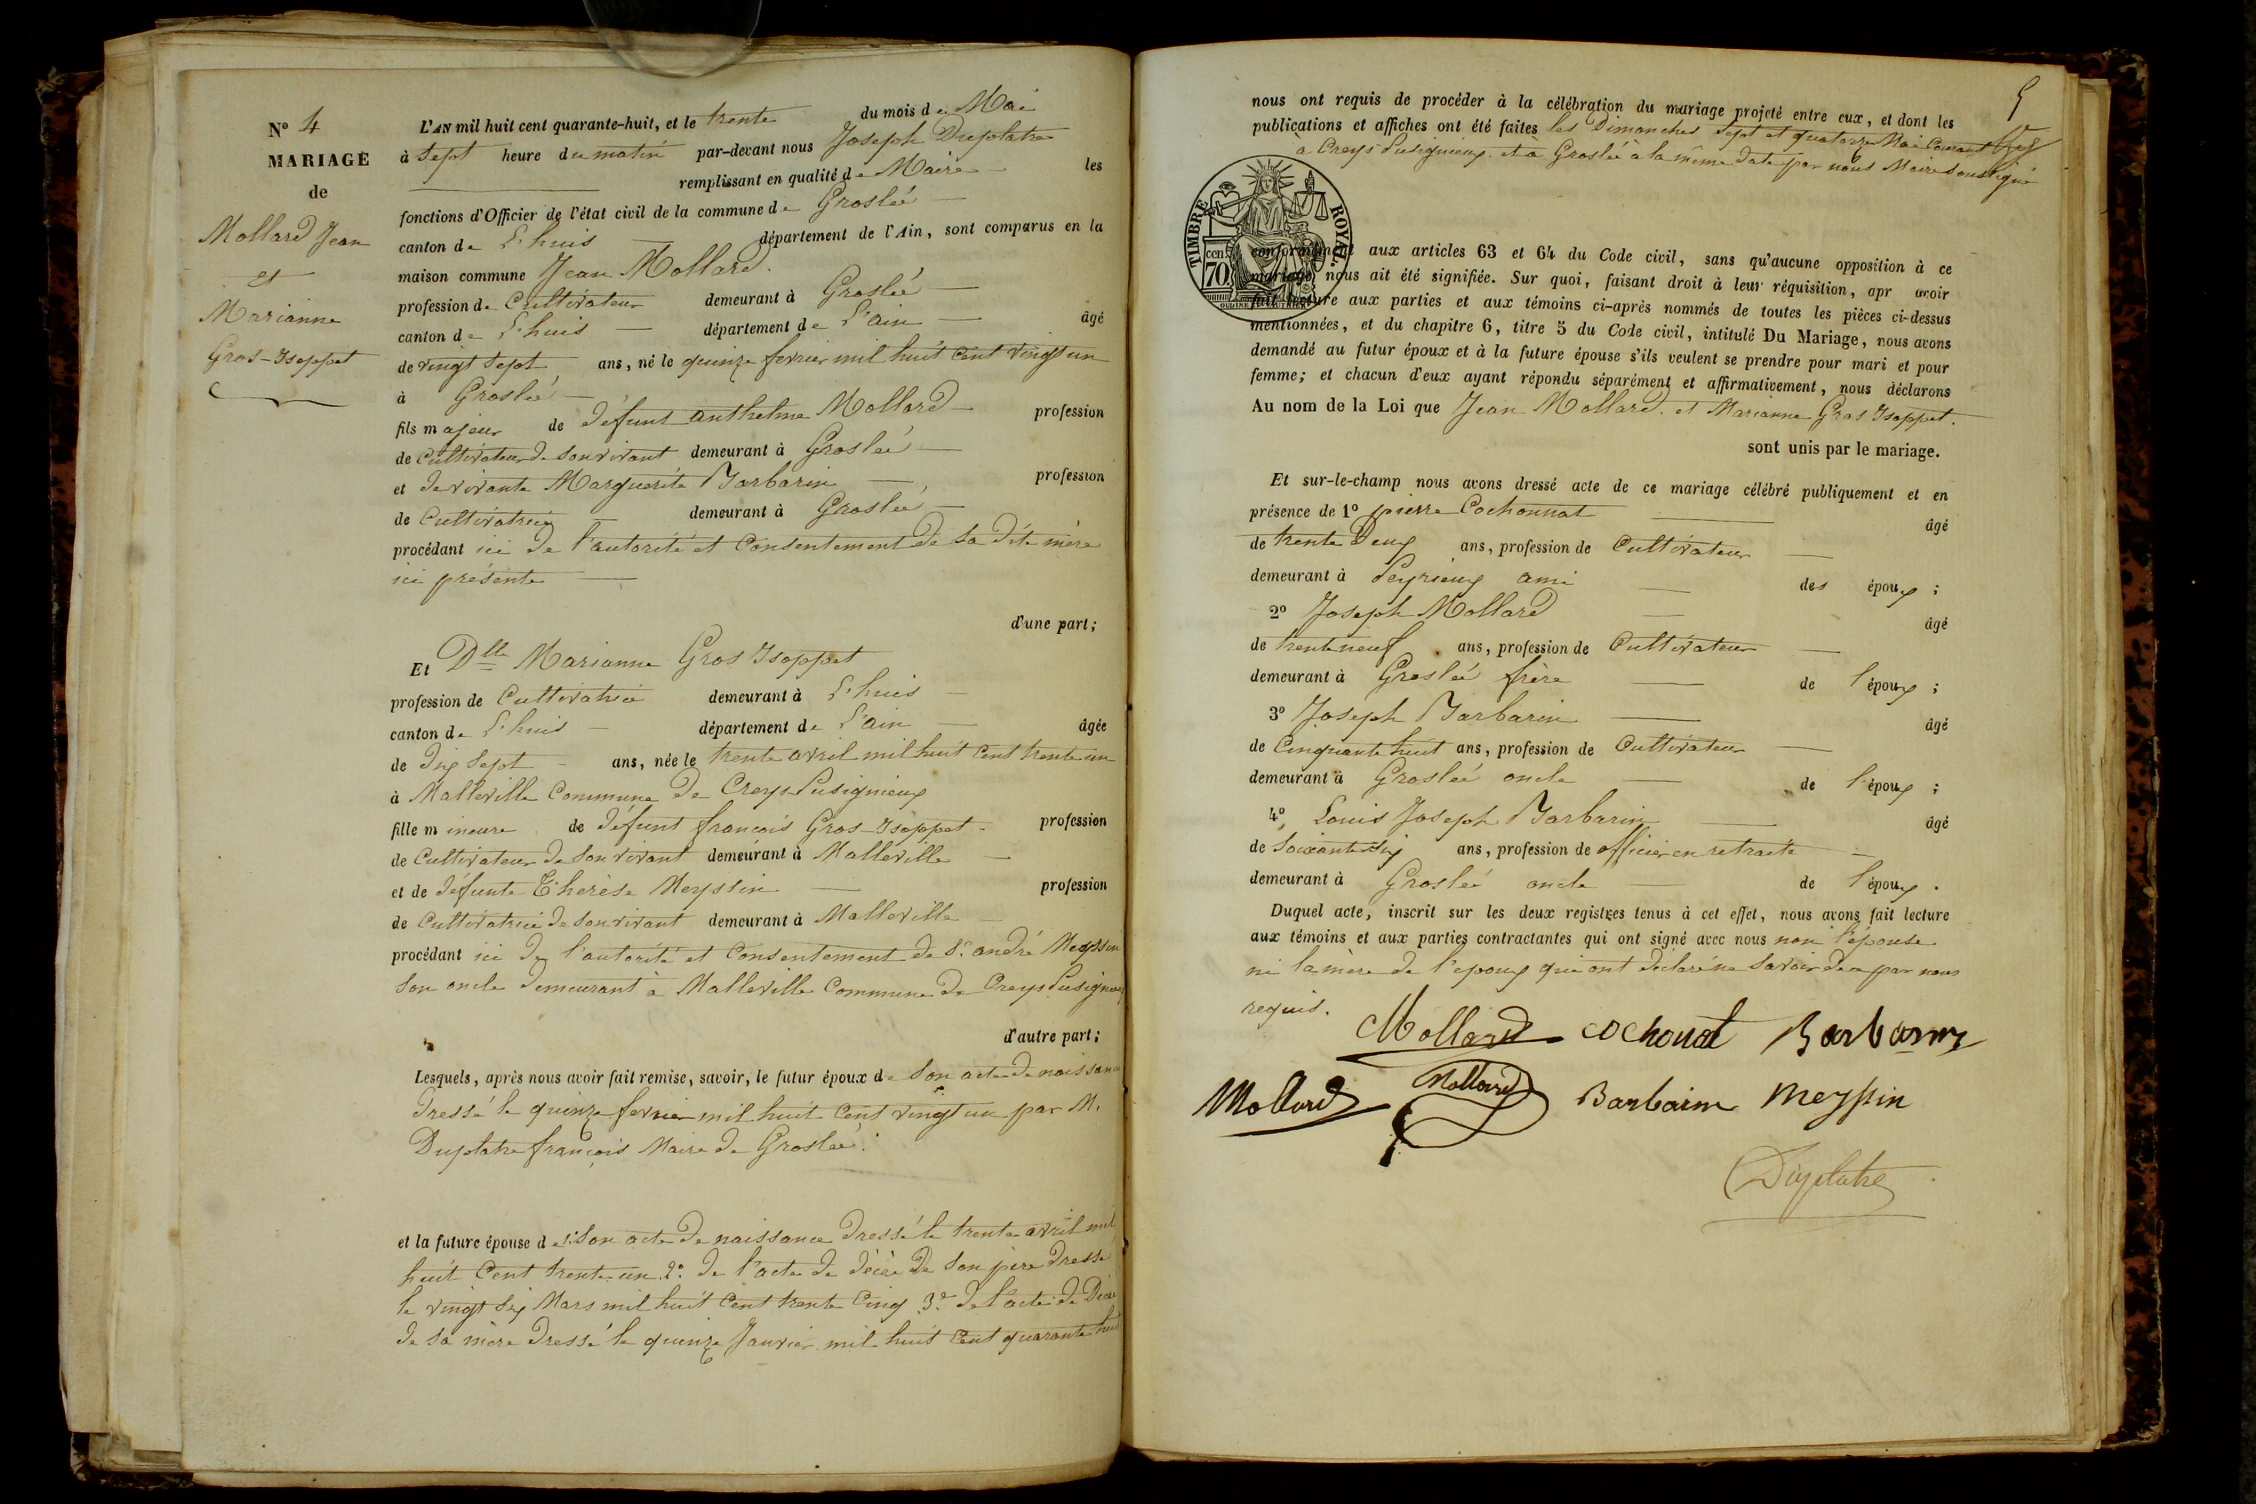 N° 4
MARIAGE
de
Mollard Jean
et
Marianne
Gros-Isoppet
L'AN mil huit cent quarante-huit, et le trente du mois de Mai
à sept heure du matin par-devant nous Joseph Duplatre
remplissant en qualité de Maire les
fonctions d'Officier de l'état civil de la commune de Groslée
canton de L'huis département de l'Ain, sont comparus en la
maison commune Jean Mollard.
profession de Cultivateur demeurant à Groslée
canton de L'huis département de L'ain âgé
de vingt sept ans, né le quinze fevrier mil huit cent vingt un
à Groslée
fils majeur de défunt anthelme Mollard profession
de Cultivateur de son vivant demeurant à Groslée
et de vivante Marguerite Barbarin profession
de Cultivatrice demeurant à Groslée
procédant ici de l'autorité et Consentement de sa dite mère
ici présente
d'une part;
Et Dlle Marianne Gros Isoppet
profession de Cultivatrice demeurant à L'huis
canton de L'huis département de L'ain âgée
de dix sept ans, née le trente avril mil huit cent trente un
à Malleville Commune de Creys Pusignieux
fille mineure de défunt françois Gros-Isoppet profession
de Cultivateur de son vivant demeurant à Malleville
et de défunte Thérèse Meyssin profession
de Cultivatrice de son vivant demeurant à Malleville
procédant ici de l'autorité et Consentement de Sr. andré Meyssin
son oncle demeurant à Malleville Commune de Creys Pusignieux
d'autre part;
Lesquels, après nous avoir fait remise, savoir, le futur époux de son acte de naissance
dressé le quinze fevrier mil huit cent vingt un par M.
Duplatre françois Maire de Groslée.
et la future épouse de 1° son acte de naissance dressé le trente avril mil
huit Cent trente un 2° de l'acte de décès de son père dressé
le vingt six Mars mil huit Cent trente Cinq 3° de l'acte de Décès
de sa mère dressé le quinze Janvier mil huit Cent quarante huit
5
nous ont requis de procéder à la célébration du mariage projeté entre eux, et dont les
publications et affiches ont été faites les Dimanches sept et quatorze Mai Courant
à Creys Pusignieux et à Groslée à la même date par nous Maire soussigné
TIMBRE ROYAL
cen. 70
conformément aux articles 63 et 64 du Code civil, sans qu'aucune opposition à ce
mariage nous ait été signifiée. Sur quoi, faisant droit à leur réquisition, apr avoir
fait lecture aux parties et aux témoins ci-après nommés de toutes les pièces ci-dessus
mentionnées, et du chapitre 6, titre 5 du Code civil, intitulé Du Mariage, nous avons
demandé au futur époux et à la future épouse s'ils veulent se prendre pour mari et pour
femme; et chacun d'eux ayant répondu séparément et affirmativement, nous déclarons
Au nom de la Loi que Jean Mollard. et Marianne Gros Isoppet.
sont unis par le mariage.
Et sur-le-champ nous avons dressé acte de ce mariage célébré publiquement et en
présence de 1° pierre Cochonnat âgé
de trente Deux ans, profession de Cultivateur
demeurant à Peyrieux ami des époux;
2° Joseph Mollard âgé
de trente neuf ans, profession de Cultivateur
demeurant à Groslée frère de l'époux;
3° Joseph Barbarin âgé
de Cinquante huit ans, profession de Cultivateur
demeurant à Groslée oncle de l'époux;
4° Louis Joseph Barbarin âgé
de soixante six ans, profession de officier en retraite
demeurant à Groslée oncle de l'époux.
Duquel acte, inscrit sur les deux registres tenus à cet effet, nous avons fait lecture
aux témoins et aux parties contractantes qui ont signé avec nous non l'épouse
ni la mère de l'époux qui ont déclaré ne savoir de ce par nous
requis.
Mollard Cochonat Barbarin
Mollard Mollard Barbarin Meyssin
Duplatre